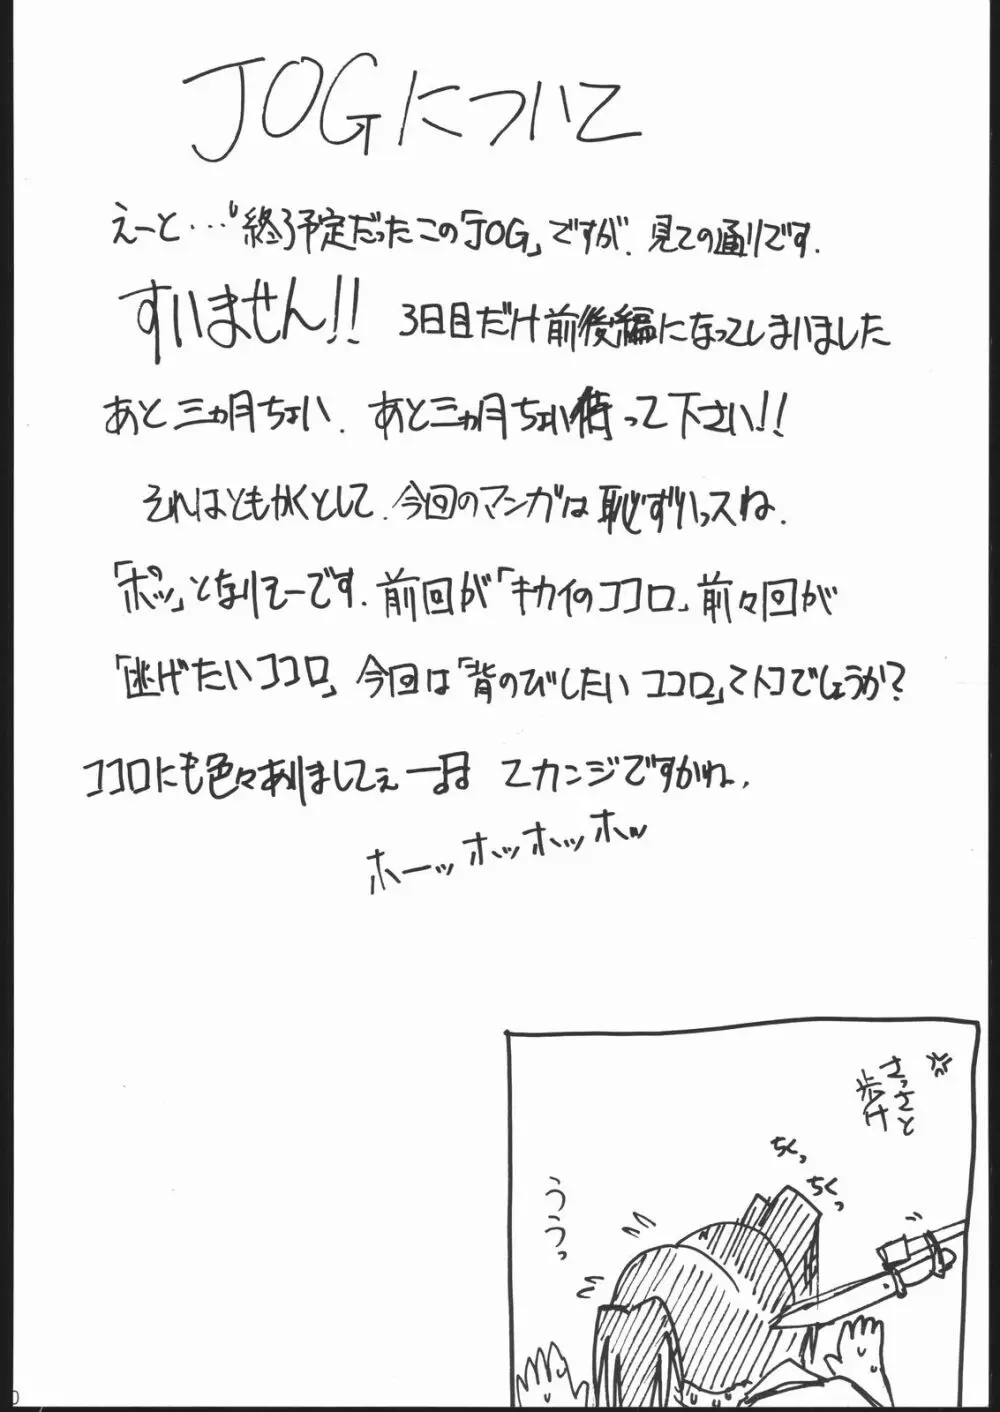 JOGについて
えーと…終了予定だったこの「JOG」ですが、見ての通りです.
すいません!! 3日目だけ前後編になってしまいました
あと三ヵ月ちょい、あと三ヵ月ちょい待って下さい!!
それはともかくとして、今回のマンガは恥ずいっスね.
「ポッ」となりそーです. 前回が「キカイのココロ」前々回が
「逃げたいココロ」今回は「背のびしたいココロ」てトコでしょうか?
ココロにも色々ありましてぇー
てカンジですかね.
ホーッホッホッホッ
さっさと
歩け
ちくっ
ちくっ
ううっ